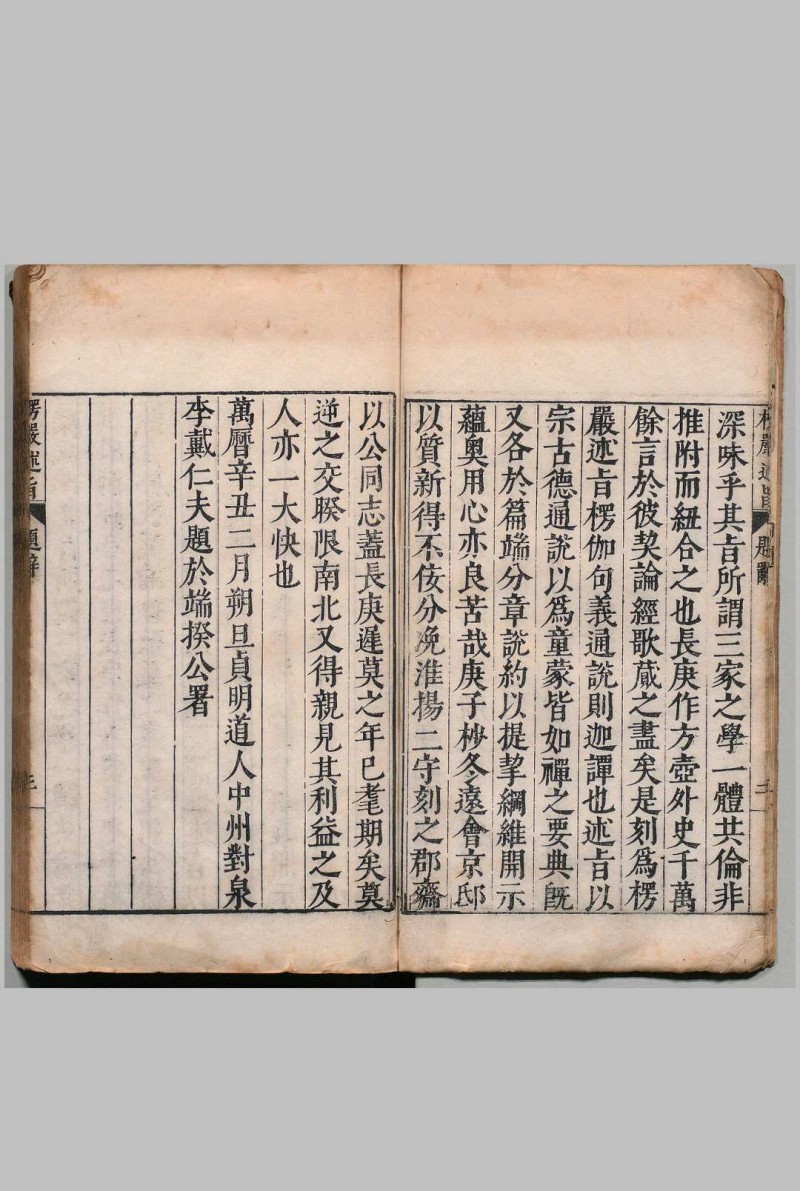 楞嚴述旨 題辭 三
深味乎其旨所謂三家之學一體共倫非
推附而紐合之也長庚作方壺外史千萬
餘言於彼契論經歌蕆之盡矣是刻爲楞
嚴述旨楞伽句義通說則迦譚也述旨以
宗古德通說以爲童蒙皆如禪之要典旣
又各於篇端分章說約以提挈綱維開示
蘊奧用心亦良苦哉庚子杪冬遠會京邸
以質新得不佞分俛淮揚二守刻之郡齋
以公同志蓋長庚遲莫之年已耄期矣莫
逆之交睽限南北又得親見其利益之及
人亦一大快也
萬曆辛丑二月朔旦貞明道人中州對泉
李戴仁夫題於端揆公署
楞嚴述旨 題辭